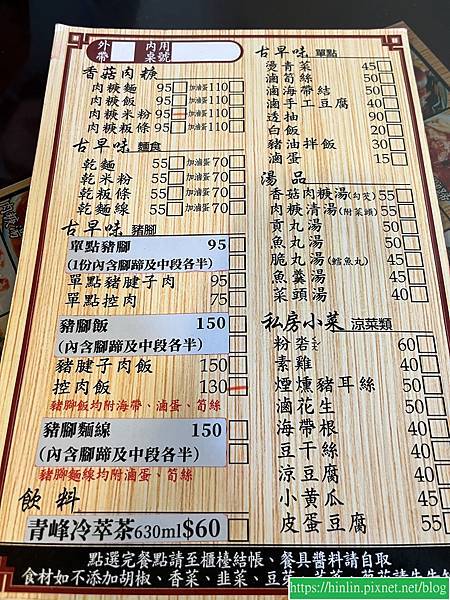 外帶 內用桌號
香菇肉粳
肉粳麵 95 加滷蛋110
肉粳飯 95 加滷蛋110
肉粳米粉 95 加滷蛋110
肉粳粄條 95 加滷蛋110
古早味 麵食
乾麵 55 加滷蛋70
乾米粉 55 加滷蛋70
乾粄條 55 加滷蛋70
乾麵線 55 加滷蛋70
古早味 豬腳
單點豬腳 95
(1份內含腳蹄及中段各半)
單點豬腱子肉 95
單點控肉 75
豬腳飯 150
(內含腳蹄及中段各半)
豬腱子肉飯 150
控肉飯 130
豬腳飯均附海帶、滷蛋、筍絲
豬腳麵線 150
(內含腳蹄及中段各半)
豬腳麵線均附滷蛋、筍絲
飲料
青峰冷萃茶630ml $60
古早味 單點
燙青菜 45
滷筍絲 50
滷海帶結 50
滷手工豆腐 40
透抽 90
白飯 20
豬油拌飯 30
滷蛋 15
湯品
香菇肉粳湯(勾芡) 55
肉粳清湯(附菜頭) 55
貢丸湯 40
魚丸湯 40
脆丸湯(鱈魚丸) 45
魚羹湯 45
菜頭湯 40
私房小菜 涼菜類
粉粩 60
素雞 40
煙燻豬耳絲 50
滷花生 50
海帶根 40
豆干絲 40
涼豆腐 40
小黃瓜 45
皮蛋豆腐 55
點選完餐點請至櫃檯結帳、餐具醬料請自取
食材如不添加胡椒、香菜、韭菜、豆芽
https://hinlin.pixnet.net/blog